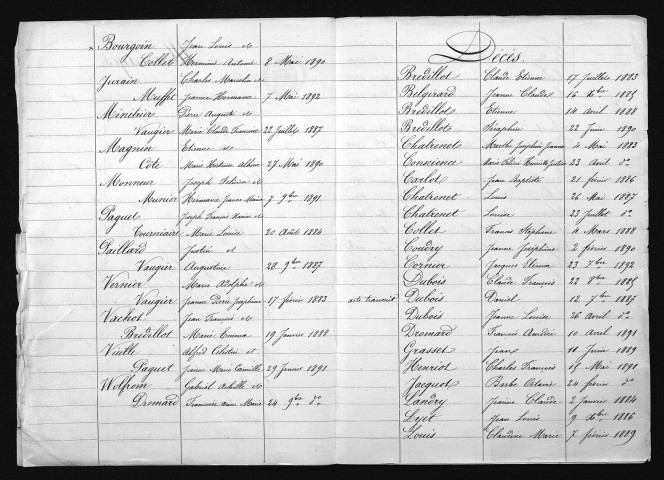 × Bourgoin Jean Louis et
Collet Hermine Antoine 8 Mai 1890
Jurain Charles Marcelin et
Muffet Jeanne Hermance 7 Mai 1892
Ménétrier Pierre Auguste et
Vaugier Marie Claude Francine 22 Juillet 1887
Magnin Etienne et
Côte Marie 27 Mai 1890
Monneur Joseph et
Munier Hermance Jeanne Marie 7 9bre 1891
Paguet Joseph François Xavier et
Tourniaire Marie Louise 20 Août 1884
Paillard Justin et
Vaugier Augustine 28 9bre 1887
Vernier Marie Adolphe et
Vaugier Jeanne Pierre Joséphine 17 février 1883 acte transcrit
Vachot Jean François et
Bredillot Marie Emma 19 Janvier 1888
Vieille Alfred Célestin et
Paguet Jeanne Marie Camille 29 Janvier 1891
Wolfrom Gabriel Achille et
Dromard Françoise Anne Marie 24 9bre do
Décès
Bredillot Claude Etienne 17 Juillet 1883
Belgirard Jeanne Claude 16 Xbre 1885
Bredillot Etienne 14 avril 1888
Bredillot Séraphin 22 Juin 1890
Chatrenet Marthe Joséphine Jeanne 4 Mai 1883
Conscience Marie 23 avril do
Carlot Jean Baptiste 21 février 1886
Chatrenet Louis 26 Mai 1887
Chatrenet Louise 23 Juillet do
Collet Francis Stéphane 4 Mars 1888
Coudry Jeanne Joséphine 2 février 1890
Cornier Jacques Etienne 23 7bre 1892
Dubois Claude François 22 8bre 1885
Dubois Daniel 12 7bre 1887
Dubois Jeanne Louise 26 Avril do
Dromard François Amédée 10 Avril 1891
Grasset Jean 11 Juin 1889
Henriot Charles François 15 Mai 1891
Jacquot Barbe Octavie 24 février do
Landry Jeanne Claude 2 Janvier 1884
Lyet Jean Louis 9 Xbre 1886
Louis Claudine Marie 7 février 1889